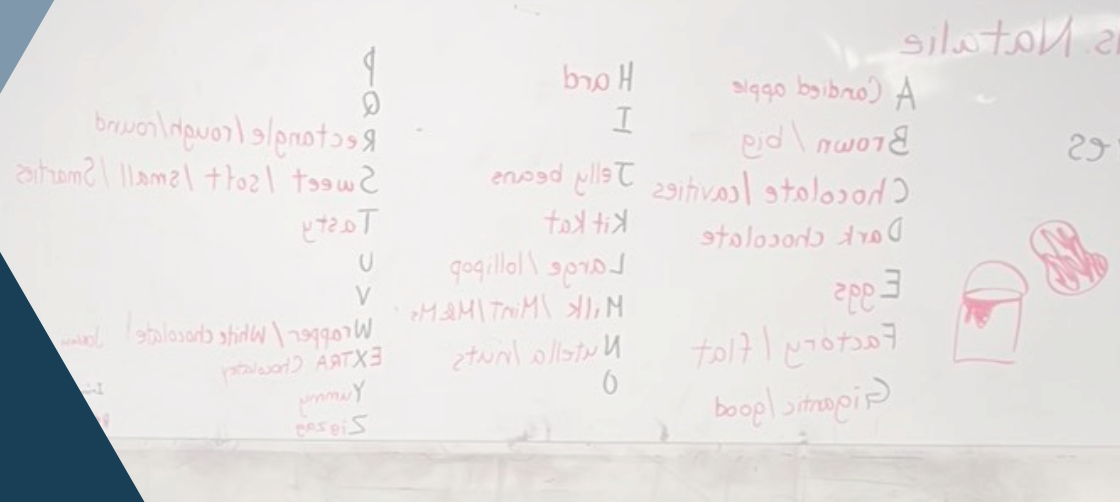 s. Natalie
es
A Candied apple
Brown / big
Chocolate / cavities
Dark chocolate
Eggs
Factory / flat
Gigantic / good
Hard
I
Jelly beans
Kit kat
Large / lollipop
Milk / MinT / M&Ms
Nutella / nuts
O
P
Q
Rectangle / rough / round
Sweet / soft / small / Smarties
Tasty
U
V
Wrapper / White chocolate /
EXTRA Chocolatey
Yummy
Zigzag